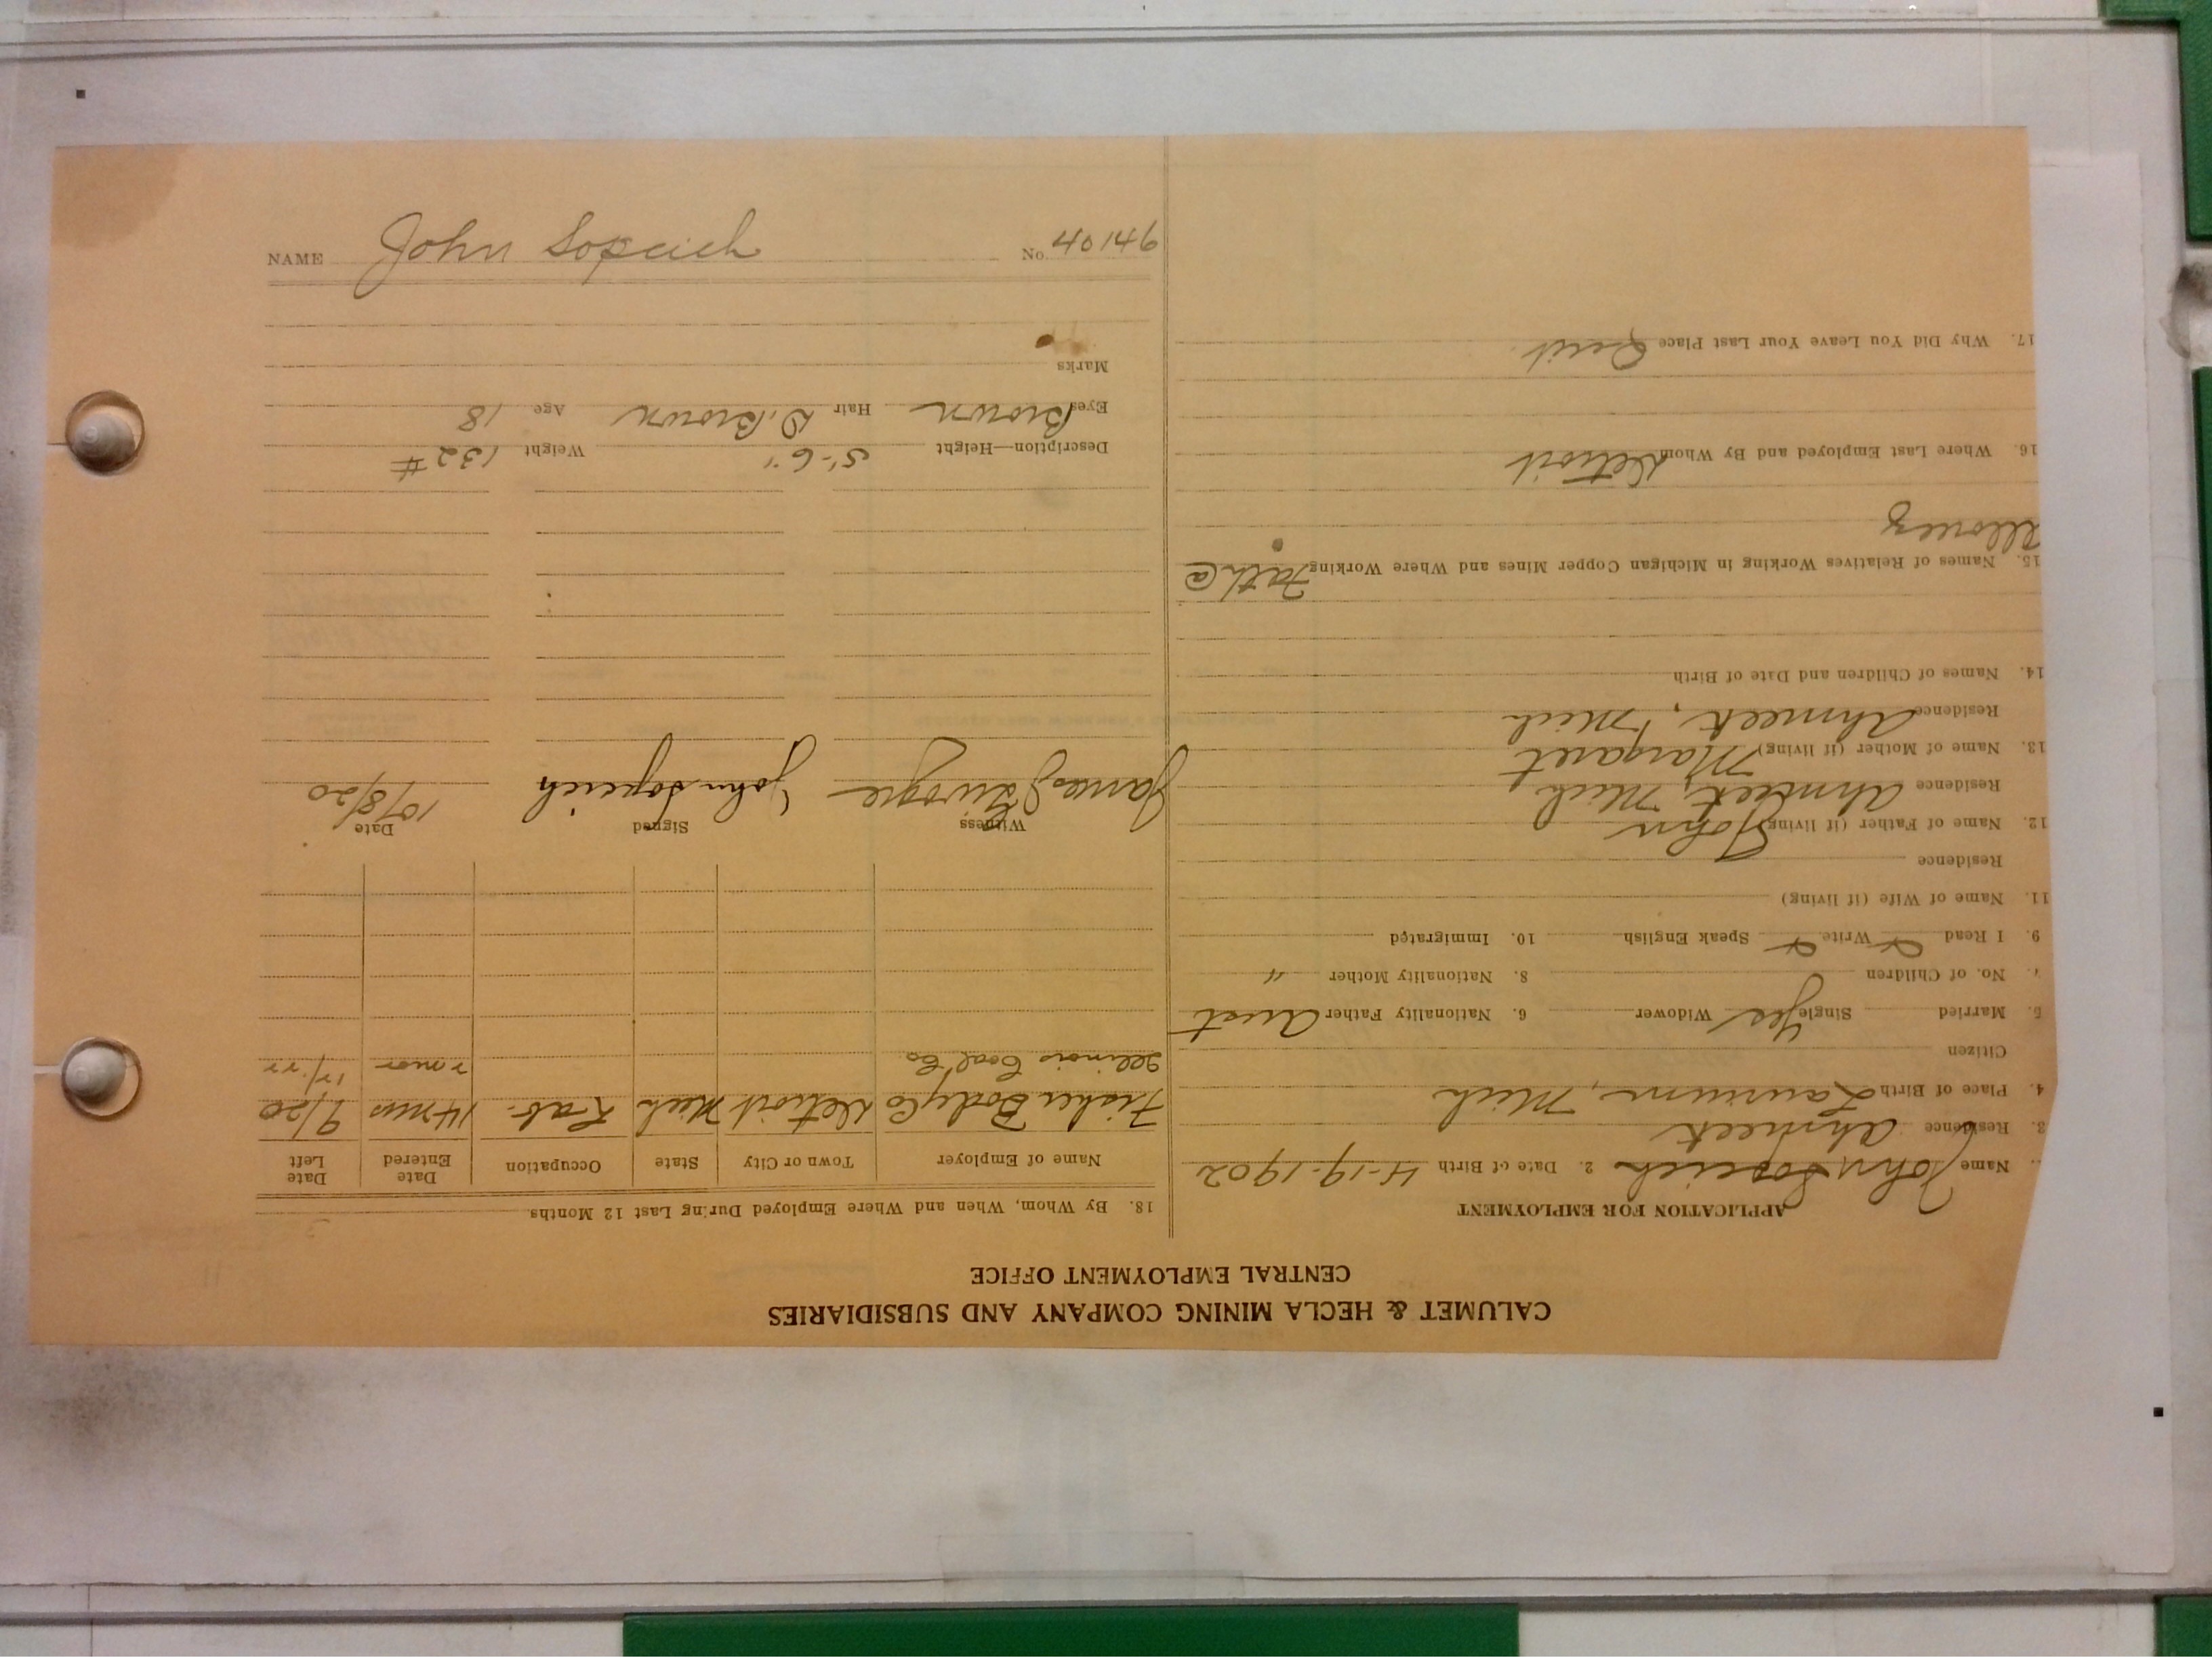 CALUMET & HECLA MINING COMPANY AND SUBSIDIARIES
CENTRAL EMPLOYMENT OFFICE
APPLICATION FOR EMPLOYMENT
Name John Sopcich 2. Date of Birth 4-19-1902
3. Residence Ahmeek
4. Place of Birth Laurium, Mich
Citizen
5. Married Single Yes Widower 6. Nationality Father Aust
7. No. of Children 8. Nationality Mother "
9. I Read Write Speak English 10. Immigrated
11. Name of Wife (if living)
Residence
12. Name of Father (if living) John
Residence Ahmeek, Mich
13. Name of Mother (if living) Margaret
Residence Ahmeek, Mich
14. Names of Children and Date of Birth
15. Names of Relatives Working in Michigan Copper Mines and Where Working Fath @
Allouez
16. Where Last Employed and By Whom Detroit
17. Why Did You Leave Your Last Place Quit
18. By Whom, When and Where Employed During Last 12 Months
Name of Employer Town or City State Occupation Date Entered Date Left
Fisher Body Co Detroit Mich Lab. 14 mos 9/20
Illinois Coal Co 2 mos
Witness Signed Date
James John Sopcich 10/8/20
Description—Height 5'-6" Weight 132#
Eyes Brown Hair D. Brown Age 18
Marks
NAME John Sopcich No. 40146